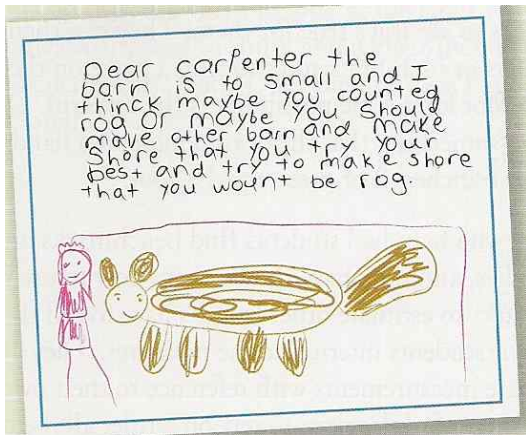 Dear carpenter the
barn is to small and I
thinck maybe you counted
rog or maybe you should
make other barn and make
Shore that you try your
best and try to make shore
that you wount be rog